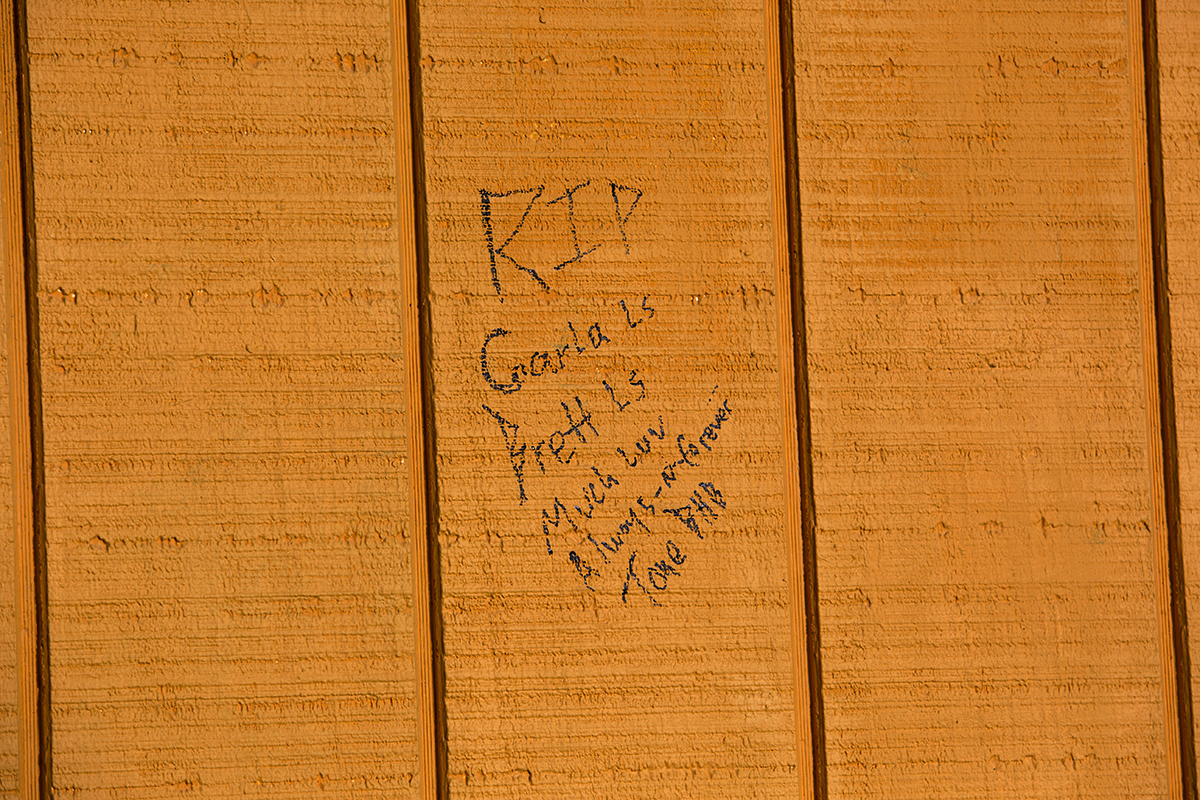 RIP
Carla Ls
Arett Ls
Much Luv
Always-n-forever
Tone BHB